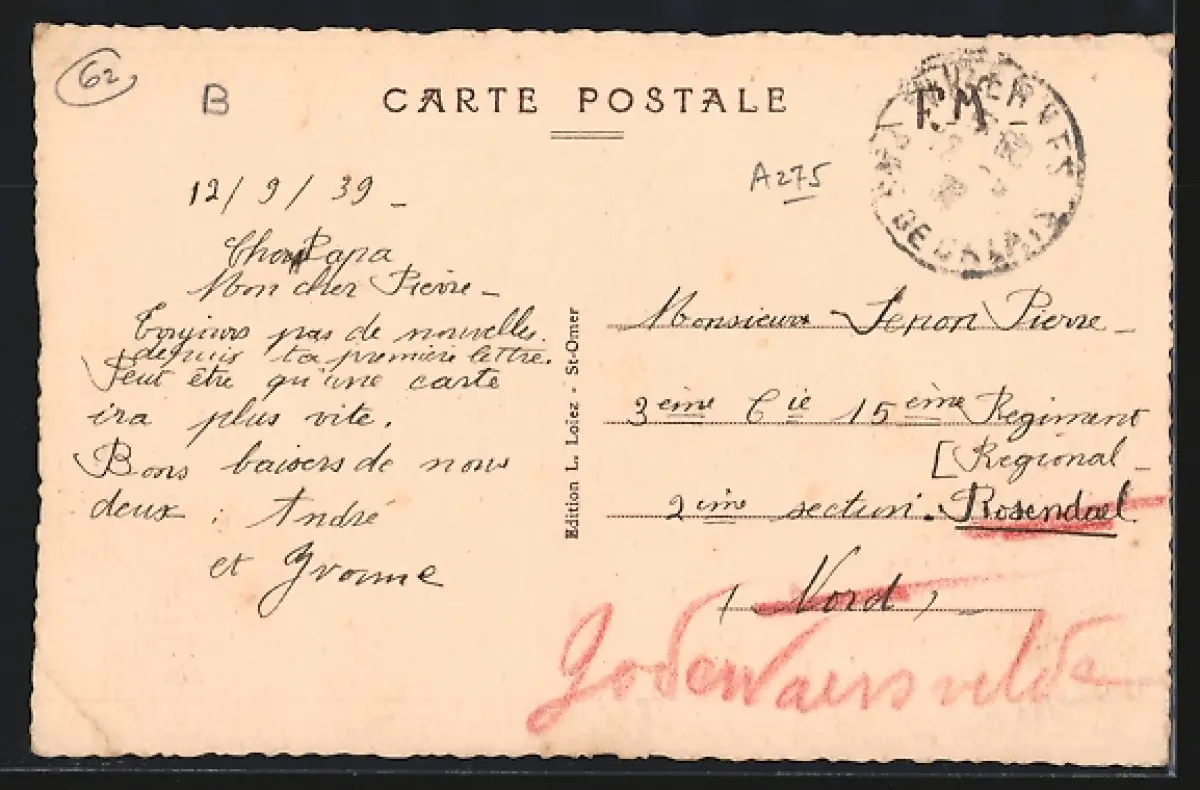 62
B
CARTE POSTALE
F.M
DE CALAIS
A275
12/9/39 _
Cher Papa
Mon cher Pierre _
Toujours pas de nouvelles.
depuis ta première lettre.
Peut être qu'une carte
ira plus vite.
Bons baisers de nous
deux : André
et Yvonne
Edition L. Loiez - St-Omer
Monsieur Pierre _
3ème Cie 15ème Regiment
[Regional _
2ème section. Rosendael
(Nord) _
Godewaersvelde